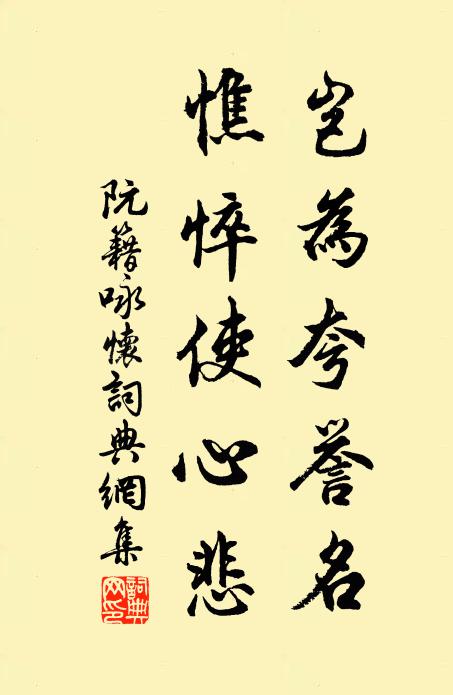 豈為夸譽名
憔悴使心悲
阮籍咏懷詞典網集